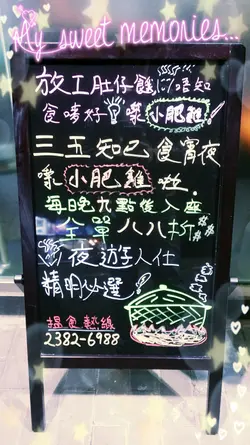 My sweet memories...
放工肚仔餓 唔知
食嘢好 嚟 小肥雞
三五知己 食宵夜
嚟 小肥雞 啦.
每晚九點後入座
全單八八折
夜遊人仕
精明必選
搵食熱線
2382-6988